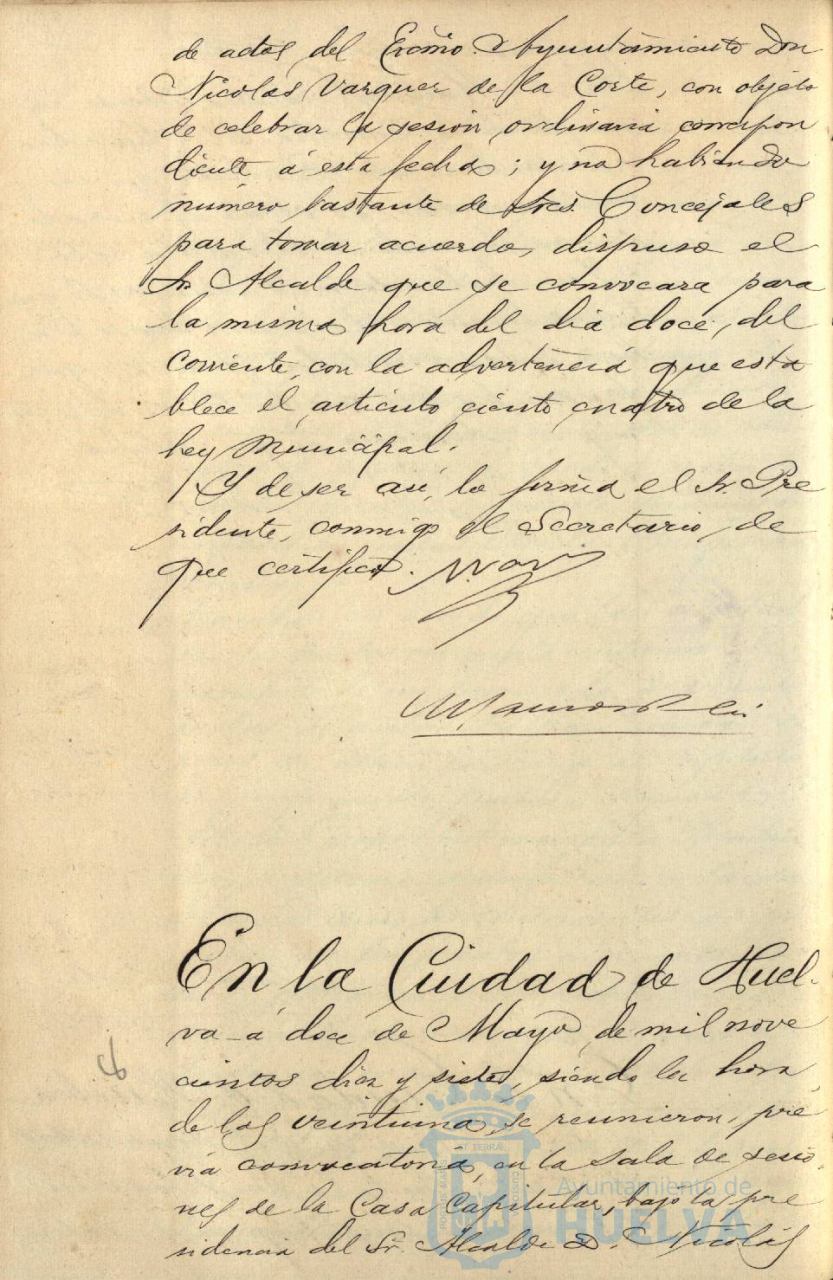 de actos del Excmo. Ayuntamiento Don
Nicolas Vazquez de la Corte, con objeto
de celebrar la sesión ordinaria correspon
diente á esta fecha; y no habiendo
número bastante de Sres. Concejales
para tomar acuerdo, dispuso el
Sr. Alcalde que se convocara para
la misma hora del dia doce, del
corriente, con la advertencia que esta
blece el articulo ciento cuatro de la
Ley Municipal.
Y de ser asi, lo firma el Sr. Pre
sidente, conmigo el Secretario, de
que certifico.
En la Ciudad de Huel-
va á doce de Mayo de mil nove
cientos diez y siete, siendo la hora
de las veintiuna, se reunieron, pre
via convocatoria, en la sala de sesio
nes de la Casa Capitular, bajo la pre
sidencia del Sr. Alcalde D. Nicolás
Ayuntamiento de
HUELVA